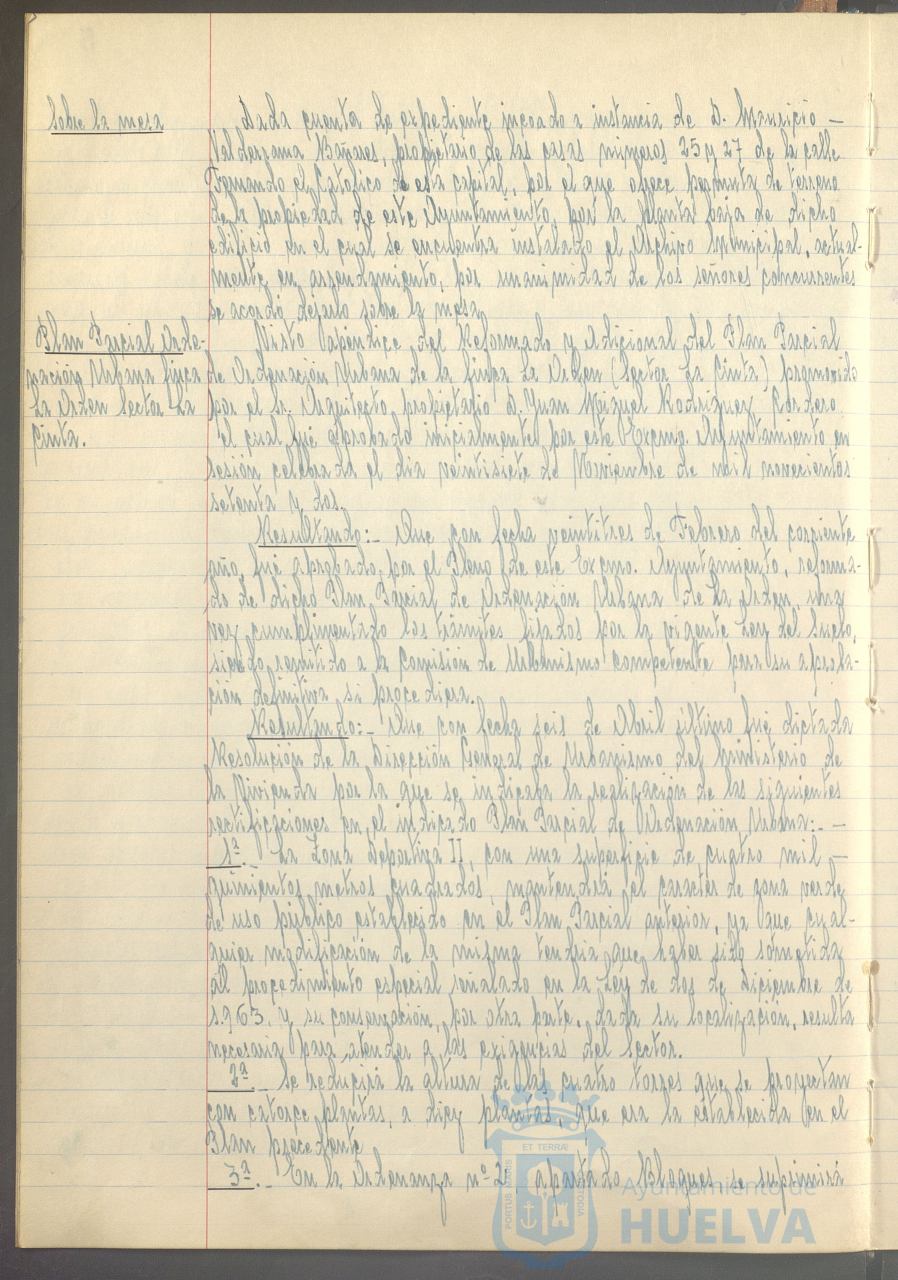 Sobre la mesa
Dada cuenta de expediente incoado a instancia de D. Mauricio –
Valderrama Bañares, propietario de las casas números 25 y 27 de la calle
Fernando el Católico de esta capital, por el que ofrece permuta de terreno
de la propiedad de este Ayuntamiento, por la planta baja de dicho
edificio en el cual se encuentra instalado el Archivo Municipal, actual-
mente en arrendamiento, por unanimidad de los señores concurrentes
se acordó dejarlo sobre la mesa.
Plan Parcial Orde-
nación Urbana finca
La Orden Sector La
Cinta.
Visto Apéndice del Reformado y Adicional del Plan Parcial
de Ordenación Urbana de la finca La Orden (Sector La Cinta) promovido
por el Sr. Arquitecto, propietario D. Juan Miguel Rodríguez Cordero,
el cual fué aprobado inicialmente por este Excmo. Ayuntamiento en
sesión celebrada el día veintisiete de Noviembre de mil novecientos
setenta y dos.
Resultando:- Que con fecha veintitres de Febrero del corriente
año, fué aprobado, por el Pleno de este Excmo. Ayuntamiento, reforma-
do de dicho Plan Parcial de Ordenación Urbana de La Orden, una
vez cumplimentado los trámites fijados por la vigente Ley del Suelo,
siendo remitido a la Comisión de Urbanismo competente para su aproba-
ción definitiva si procediera.
Resultando:- Que con fecha seis de Abril último fué dictada
Resolución de la Dirección General de Urbanismo del Ministerio de
la Vivienda por la que se indicaba la realización de las siguientes
rectificaciones en el indicado Plan Parcial de Ordenación Urbana:- –
1ª.- La Zona Deportiva II, con una superficie de cuatro mil –
quinientos metros cuadrados, mantendrá el carácter de zona verde
de uso público establecido en el Plan Parcial anterior, ya que cual-
quier modificación de la misma tendría que haber sido sometida
al procedimiento especial señalado en la Ley de dos de diciembre de
1.963, y su conservación, por otra parte, dada su localización, resulta
necesaria para atender a las exigencias del Sector.
2ª.- Se reducirá la altura de las cuatro torres que se proyectan
con catorce plantas, a diez plantas, que era la establecida en el
Plan precedente.
3ª.- En la Ordenanza nº 2 apartado Bloques se suprimirá
ET TERRAE
PORTUS MARIS
CUSTODIA
Ayuntamiento de
HUELVA